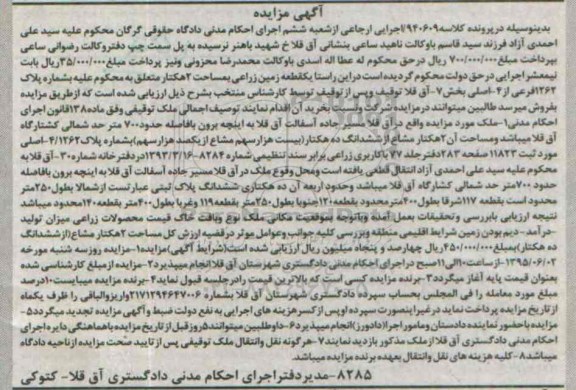 آگهی مزایده
بدینوسیله در پرونده کلاسه ۹۴۰۶۰۹/اجرایی ارجاعی از شعبه ششم اجرای احکام مدنی دادگاه حقوقی گرگان محکوم علیه سید علی
احمدی آزاد فرزند سید قاسم با وکالت ناهید ساعی بنشانی آق قلا خ شهید باهنر نرسیده به پل سمت چپ دفتر وکالت رضوانی ساعی
بپرداخت مبلغ ۷۰۰/۰۰۰/۰۰۰ ریال در حق محکوم له عطا اله اسدی با وکالت محمدرضا محزونی ونیز پرداخت مبلغ ۳۵/۰۰۰/۰۰۰ ریال بابت
نیمعشر اجرایی در حق دولت محکوم گردیده است در این راستا یکقطعه زمین زراعی بمساحت ۲ هکتار متعلق به محکوم علیه بشماره پلاک
۱۲۶۲ فرعی از ۴-اصلی بخش ۷-آق قلا توقیف وپس از توقیف توسط کارشناس منتخب بشرح ذیل ارزیابی شده است که از طریق مزایده
بفروش میرسد طالبین میتوانند در مزایده شرکت ونسبت بخرید آن اقدام نمایند توصیف اجمالی ملک توقیفی وفق ماده ۱۳۸ قانون اجرای
احکام مدنی۱-ملک مورد مزایده واقع در آق قلا مسیر جاده آسفالت آق قلا به اینچه برون بافاصله حدود ۷۰۰ متر حد شمالی کشتارگاه
آق قلا میباشد ومساحت آن ۲ هکتار مشاع از ششدانگ ده هکتار (بیست هزار سهم مشاع از یکصد هزار سهم) بشماره پلاک ۱۲۶۲/۴-اصلی
مورد ثبت ۱۱۸۲۳ صفحه ۲۸۳ دفتر جلد ۷۷ با کاربری زراعی برابر سند تنظیمی شماره ۸۲۸۴-۱۳۹۳/۳/۱۶ در دفترخانه شماره ۳۰-آق قلا به
محکوم علیه سید علی احمدی آزاد انتقال قطعی یافته است ومحل وقوع ملک در آق قلا مسیر جاده آسفالت آق قلا به اینچه برون بافاصله
حدود ۷۰۰ متر حد شمالی کشارگاه آق قلا میباشد وحدود اربعه آن ده هکتاری ششدانگ پلاک ثبتی عبارتست از شمالا بطول ۲۵۰ متر
محدود است بقطعه ۱۱۷ شرقا بطول ۴۰۰ متر محدود بقطعه ۱۲۰ جنوبا بطول ۲۵۰ متر بقطعه ۱۱۹ وغربا بطول ۴۰۰ متر بقطعه ۱۴۰ محدود میباشد
نتیجه ارزیابی بابررسی وتحقیقات بعمل آمده وباتوجه بموقعیت مکانی ملک نوع وبافت خاک قیمت محصولات زراعی میزان تولید
-درآمد-دیم بودن زمین شرایط اقلیمی منطقه وبررسی کلیه جوانب وعوامل موثر در قضیه ارزش کل مساحت ۲ هکتار مشاع (از ششدانگ
ده هکتار) بمبلغ ۴۵۰/۰۰۰/۰۰۰ ریال چهارصد و پنجاه میلیون ریال ارزیابی شده است(شرایط آگهی) مزایده۱-مزایده روز سه شنبه مورخه
۱۳۹۵/۰۶/۰۲-از ساعت ۱۰ الی ۱۱ صبح در اجرای احکام مدنی دادگستری شهرستان آق قلا انجام میپذیرد۲-مزایده از مبلغ کارشناسی شده
بعنوان قیمت پایه آغاز میگردد۳-برنده مزایده کسی است که بالاترین قیمت را در جلسه قبول نماید۴-برنده مزایده میبایست ۱۰ درصد
مبلغ مورد معامله را فی المجلس بحساب سپرده دادگستری شهرستان آق قلا بشماره ۲۱۷۱۲۹۴۶۴۷۰۰۶ واریز والباقی را ظرف یکماه
از تاریخ مزایده پرداخت نماید در غیر اینصورت سپرده او پس از کسر هزینه های اجرایی به نفع دولت ضبط و آگهی مزایده تجدید میگردد۵-
مزایده با حضور نماینده دادستان ومامور اجرا(دادورز) انجام میپذیرد۶-داوطلبین میتوانند ۵ روز قبل از تاریخ مزایده با هماهنگی دایره اجرای
احکام مدنی دادگستری آق قلا از ملک مذکور بازدید نمایند۷-هرگونه نقل وانتقال ملک توقیفی پس از تایید صحت مزایده از ناحیه دادگاه
میباشد۸-کلیه هزینه های نقل وانتقال بعهده برنده مزایده میباشد.
۸۲۸۵-مدیر دفتر اجرای احکام مدنی دادگستری آق قلا- کتوکی